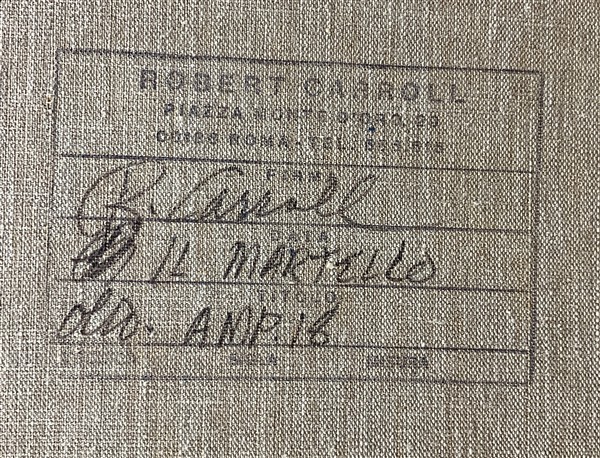 ROBERT CARROLL
PIAZZA MONTE D'ORO, 29
ROMA - TEL.
FIRMA
R. Carroll
IL MARTELLO
TITOLO
AMP. 18
MISURA